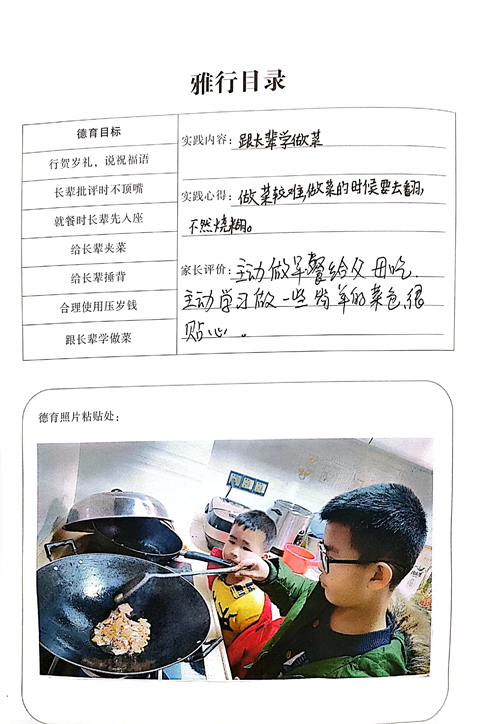 雅行目录
德育目标
行贺岁礼，说祝福语
长辈批评时不顶嘴
就餐时长辈先入座
给长辈夹菜
给长辈捶背
合理使用压岁钱
跟长辈学做菜
实践内容：跟长辈学做菜
实践心得：做菜较难,做菜的时候要去翻,
不然烧糊。
家长评价：主动做早餐给父母吃.
主动学习做一些简单的菜色,很
贴心。
德育照片粘贴处：